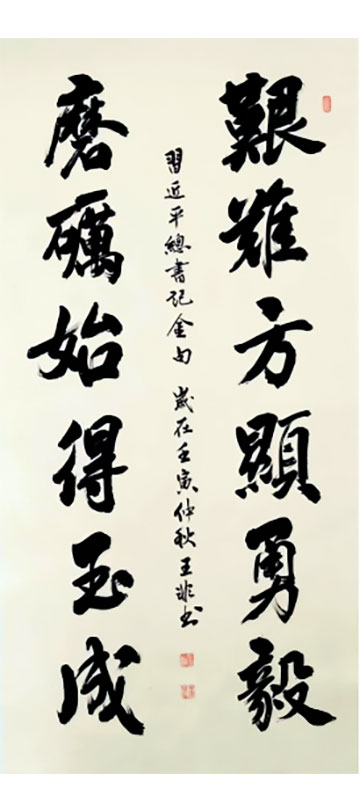 艱難方顯勇毅
磨礪始得玉成
習近平總書記金句 歲在壬寅仲秋王非书